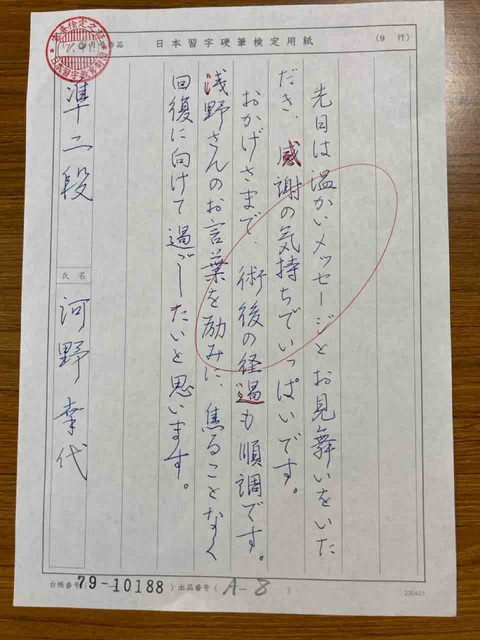 日本習字硬筆検定用紙
(9 行)
先日は温かいメッセージとお見舞いをいた
だき、感謝の気持ちでいっぱいです。
おかげさまで、術後の経過も順調です。
浅野さんのお言葉を励みに、焦ることなく
回復に向けて過ごしたいと思います。
準二段
氏名
河野幸代
台帳番号(79-10188)出品番号(A-8)
230401